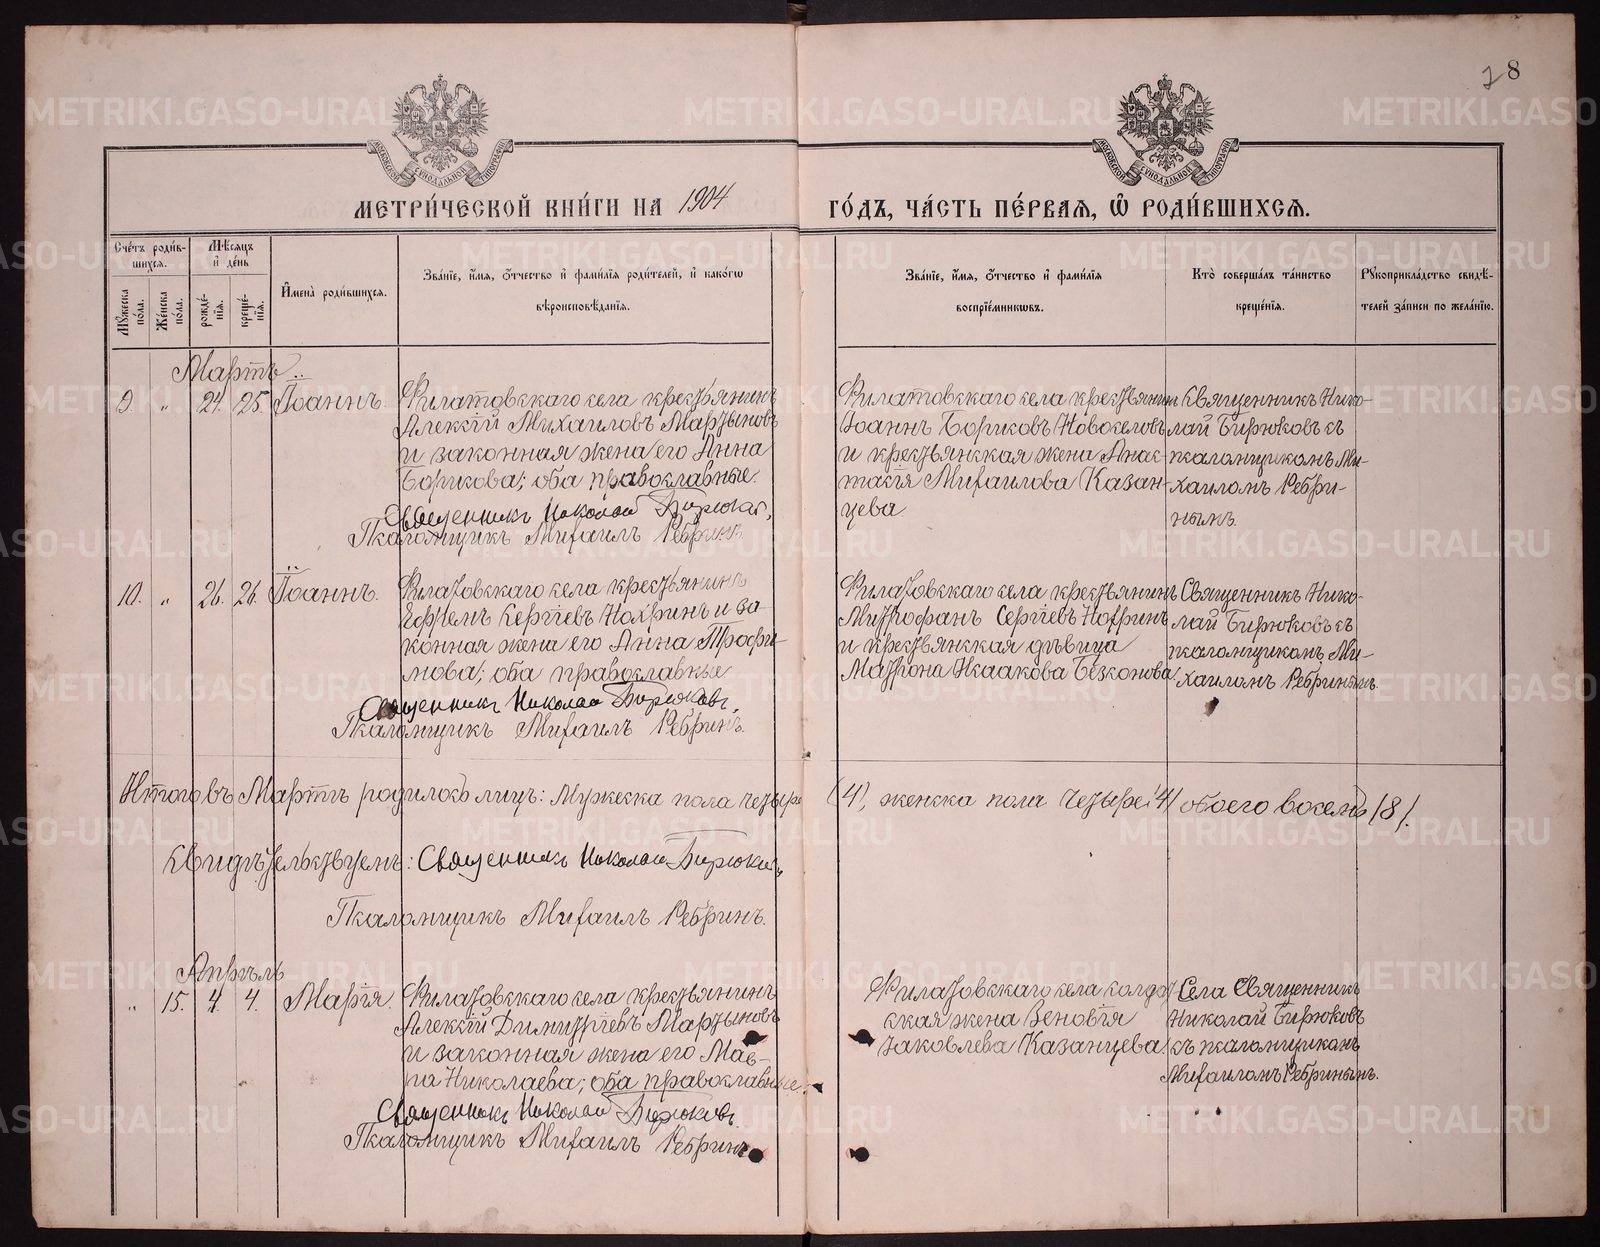 78
МОСКОВСКОЙ СѴНОДАЛЬНОЙ ТИПОГРАФІИ
МОСКОВСКОЙ СѴНОДАЛЬНОЙ ТИПОГРАФІИ
МЕТРИ́ЧЕСКОЙ КНИ́ГИ НА 1904 ГО́ДЪ, ЧА́СТЬ ПЕ́РВАЯ, Ѽ РОДИ́ВШИХСЯ.
Сче́тъ роди́в-
шихся.
Мꙋжеска по́ла.
Же́нска по́ла.
Мѣ́сяцъ
и҆ де́нь
рожде́-
нїя.
креще́-
нїя.
И҆мена̀ роди́вшихся.
Зва́нїе, и҆́мя, ѻ҆́тчество и҆ фами́лїя роди́телей, и҆ како́гѡ
вѣроисповѣ́данїя.
Зва́нїе, и҆́мя, ѻ҆́тчество и҆ фами́лїя
воспрїе́мникѡвъ.
Кто̀ соверша́лъ та́инство
креще́нїя.
Рꙋкоприкла́дство свидѣ́-
телей за́писи по жела́нїю.
Мартъ
9. „ 24. 25. Іоаннъ.
Филатовскаго села крестьянинъ
Алексій Михаиловъ Мартыновъ
и законная жена его Анна
Борисова; оба православные.
Священникъ Николай Бирюковъ.
Псаломщикъ Михаилъ Ребринъ.
Филатовскаго села крестьянинъ
Іоаннъ Борисовъ Новоселовъ
и крестьянская жена Анас-
тасія Михаилова Казан-
цева
Священникъ Нико-
лай Бирюковъ съ
псаломщикомъ Ми-
хаиломъ Ребри-
нымъ.
10. „ 26. 26. Іоаннъ.
Филатовскаго села крестьянинъ
Ефремъ Сергіевъ Нохринъ и за-
конная жена его Анна Трофи-
мова; оба православные
Священникъ Николай Бирюковъ.
Псаломщикъ Михаилъ Ребринъ.
Филатовскаго села крестьянинъ
Митрофанъ Сергіевъ Нохринъ
и крестьянская дѣвица
Матрона Исаакова Безсонова
Священникъ Нико-
лай Бирюковъ съ
псаломщикомъ Ми-
хаиломъ Ребринымъ.
Итого въ Мартѣ родилось лицъ: Мужеска пола четыре (4), женска пола четыре (4) обоего восемь (8).
Свидѣтельствуемъ: Священникъ Николай Бирюковъ
Псаломщикъ Михаилъ Ребринъ.
Апрѣль
„ 15. 4. 4. Марія.
Филатовскаго села крестьянинъ
Алексій Димитріевъ Мартыновъ
и законная жена его Мав-
ра Николаева; оба православные.
Священникъ Николай Бирюковъ.
Псаломщикъ Михаилъ Ребринъ
Филатовскаго села солдат-
ская жена Зеновія
Іаковлева Казанцева.
Села Священникъ
Николай Бирюковъ
съ псаломщикомъ
Михаиломъ Ребринымъ.
METRIKI.GASO-URAL.RU